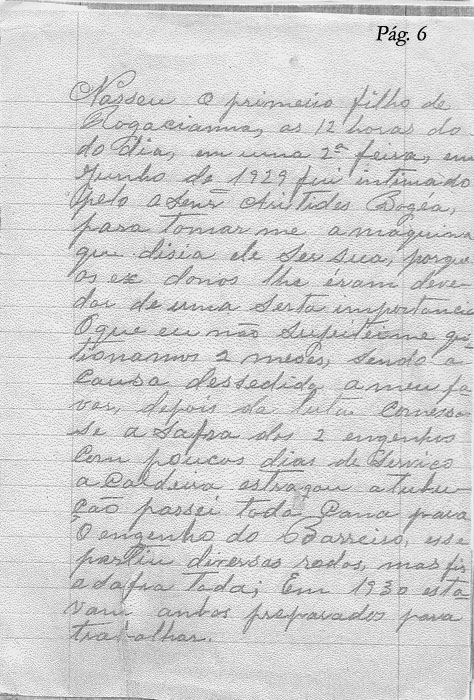 Pág. 6
Nasseu o primeiro filho de
Rogacianna, as 12 horas do
do dia, em uma 2ª feira, em
Junho de 1929 fui intimado
pelo a Senr Aristides Bogea,
para tomar me a maquina
que disia ele ser sua, porque
os ex donos lhe éram deve-
dor de uma serta importancia
O que eu não
tionamos 2 mêses, sendo a
causa dessedida a meu fa
vor, depois da luta comessa
se a safra dos 2 engenhos
com poucos dias de serviço
a caldeira estragou a tubu-
ção passei toda cana para
O engenho do Barreiro, esse
partiu diversas rodas, mas fis
a safra toda; Em 1930 esta
vam ambos preparados para
trabalhar.